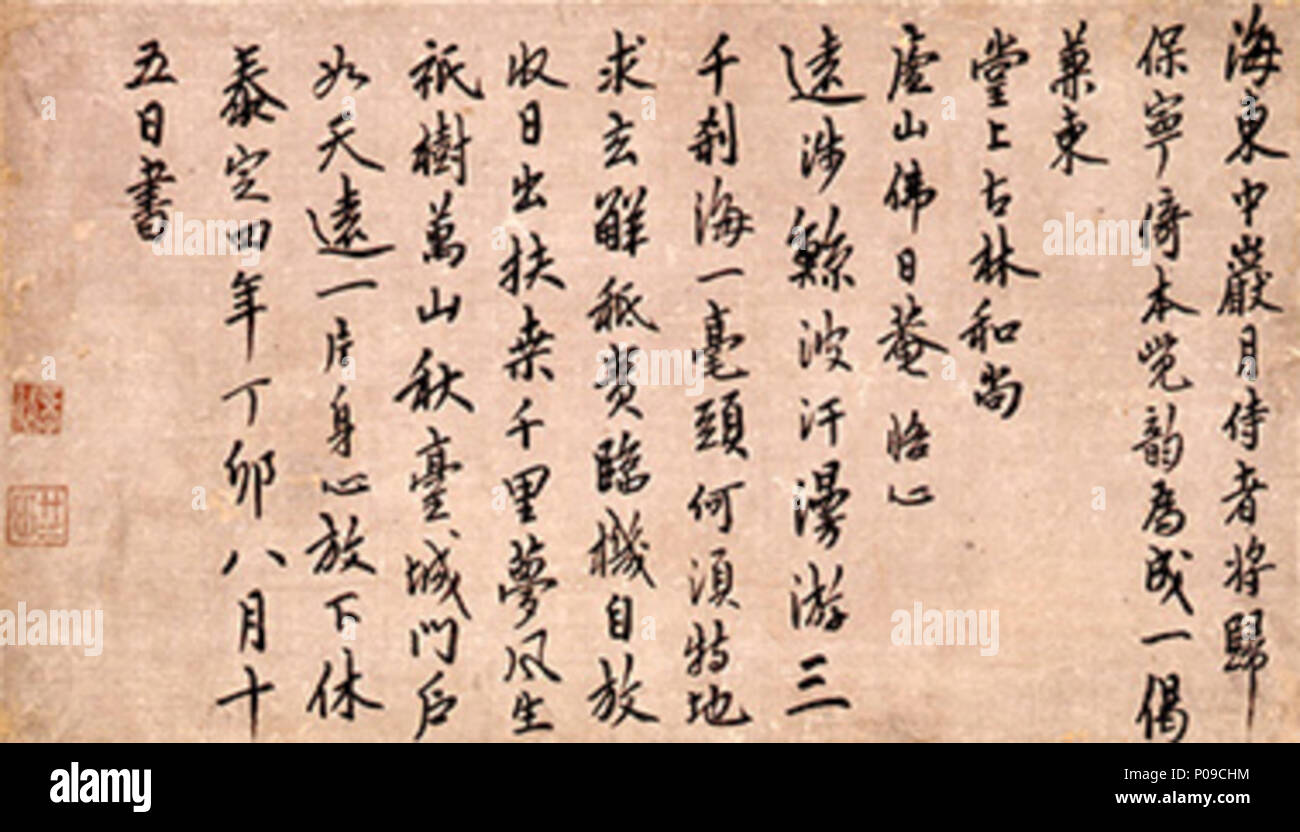 海東中巖月侍者將歸
保寧倚本覺韻爲成一偈
兼柬
堂上古林和尚
廬山佛日菴 悟心
遠涉鯨波汗漫游三
千刹海一毫頭何須特地
求玄解秪費臨機自放
收日出扶桒千里夢風生
祇樹萬山秋臺城門戶
如天遠一片身心放下休
泰定四年丁卯八月十
五日書
alamy
Image ID: P09CHM
www.alamy.com